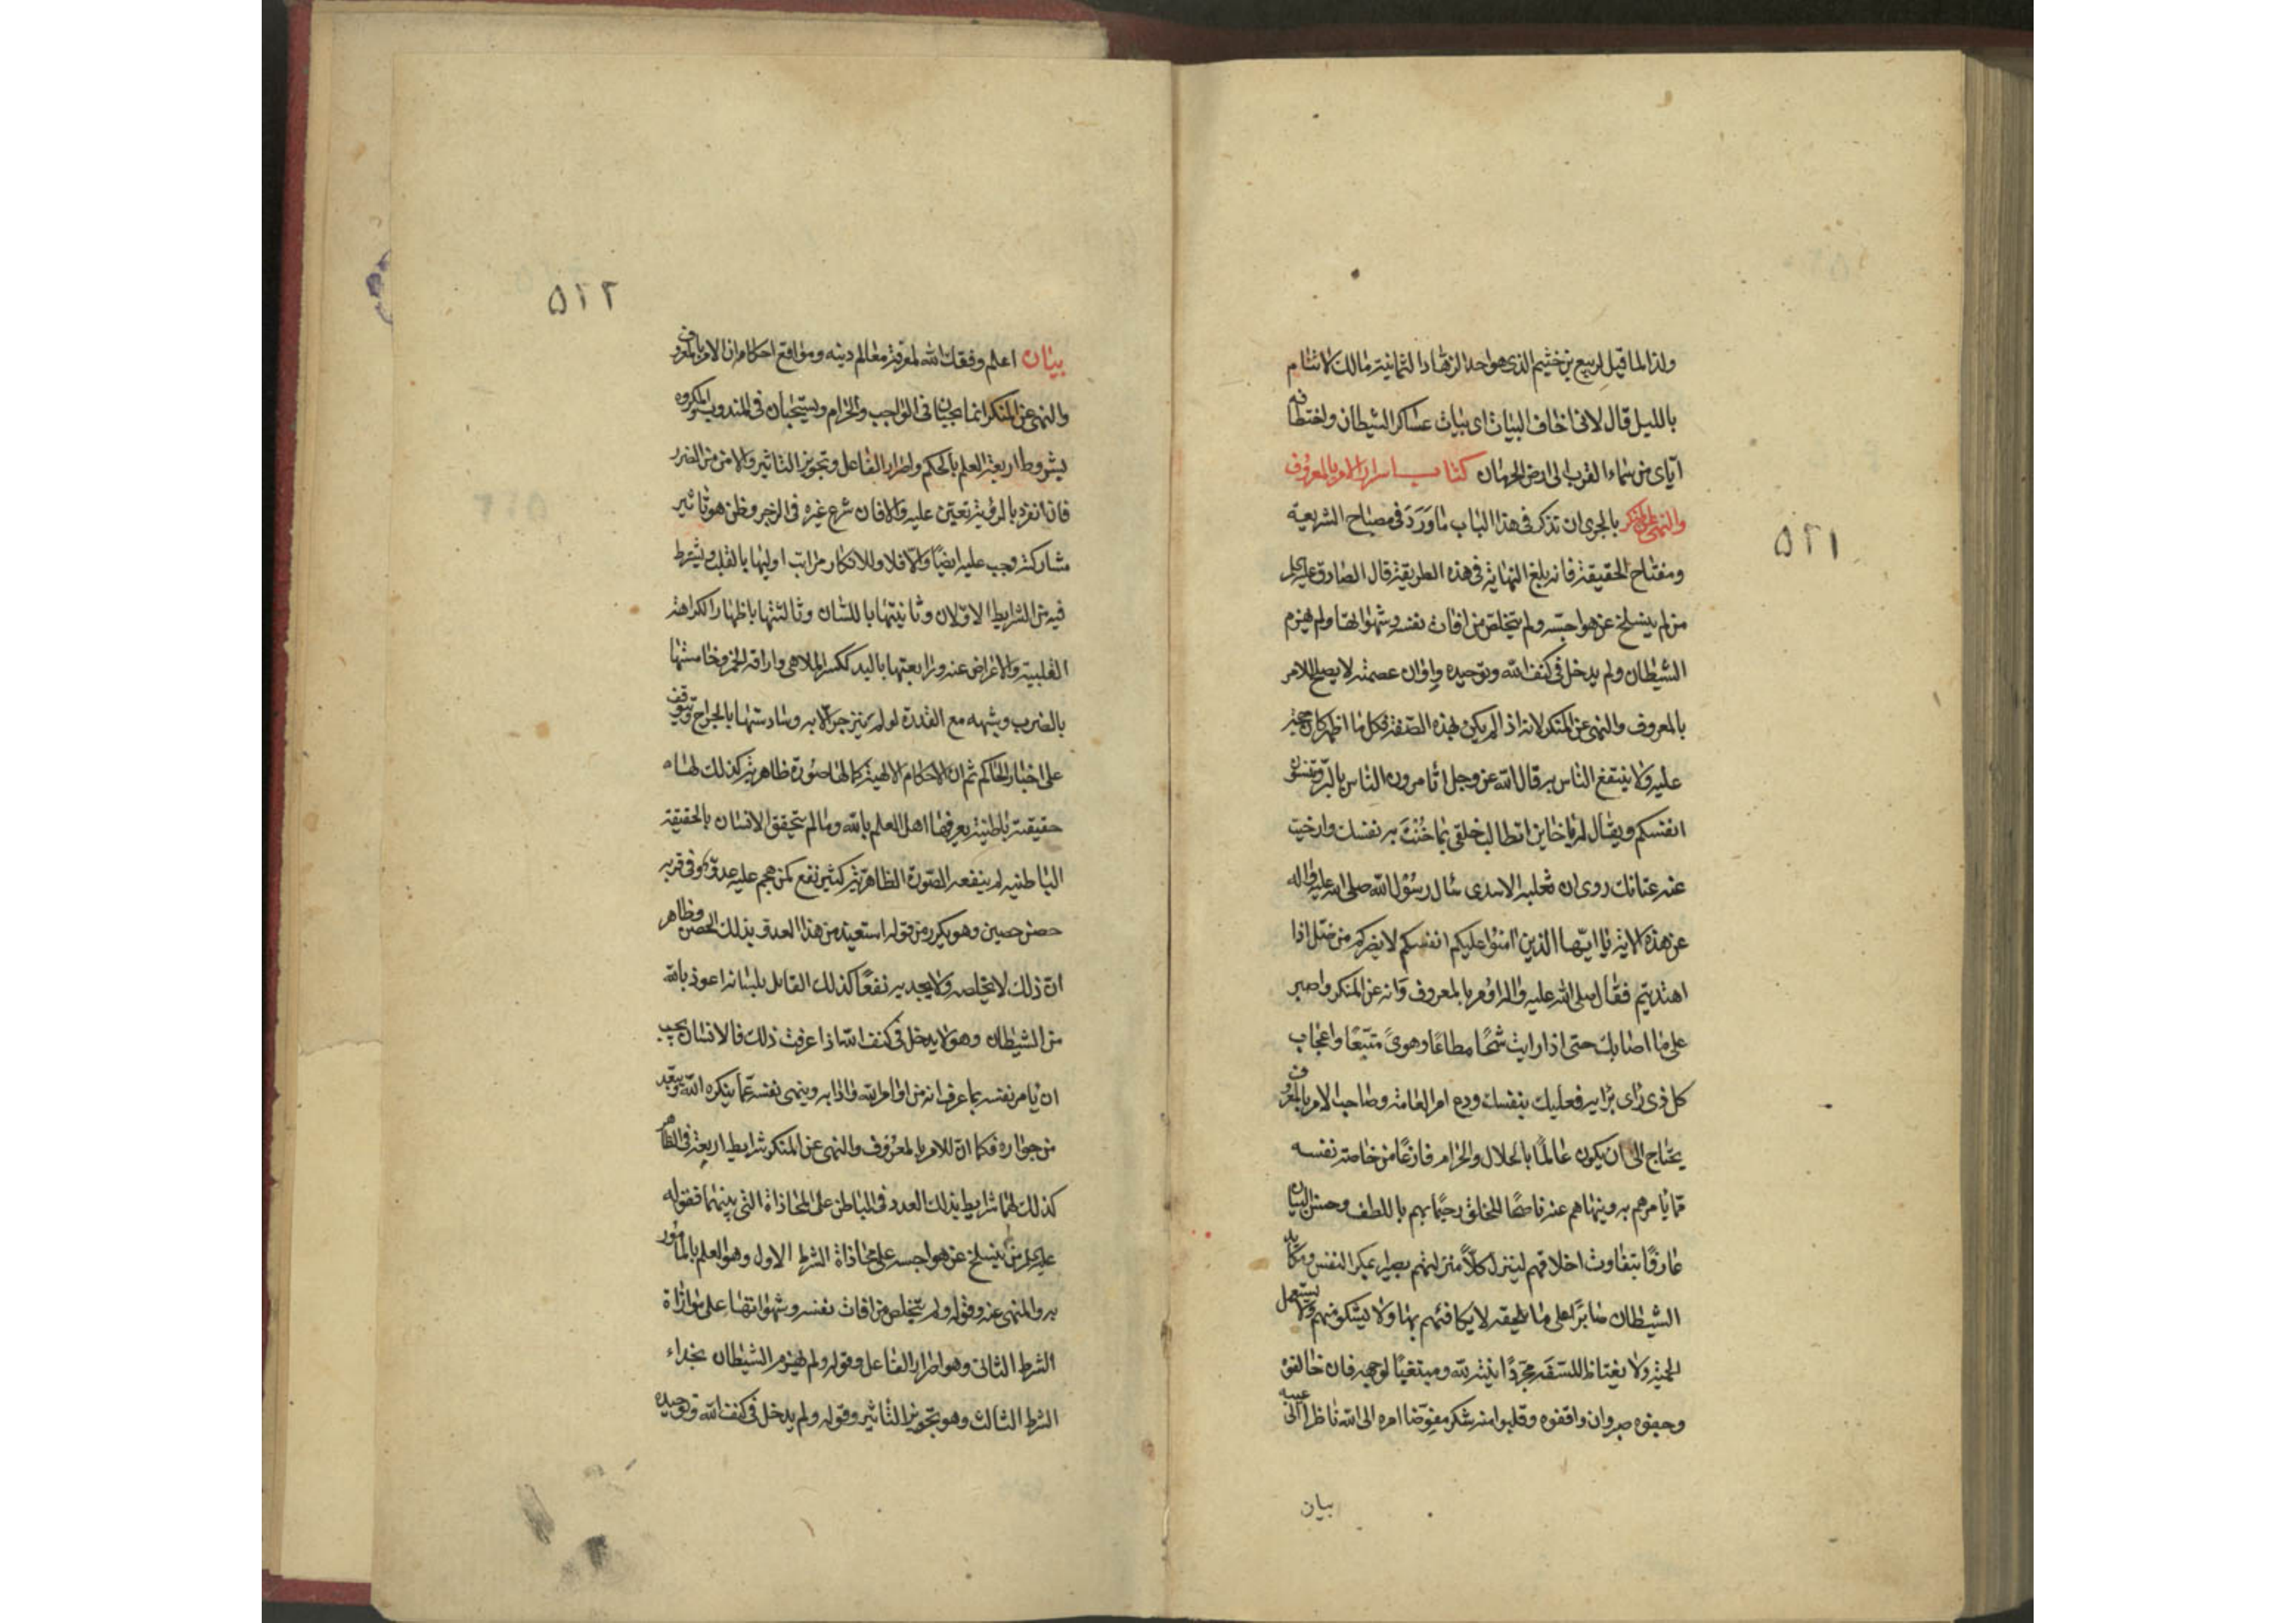 ولذا لما قيل لربيع بن خثيم الذى هو احد الزهاد الثمانية مالك لا تنام
بالليل قال لانى اخاف البيات اى بيات عساكر الشيطان واختطافه
اياى من سماء القرب الى ارض الحرمان كتاب اسرار الامر بالمعروف
والنهى عن المنكر بالحرى ان تذكر فى هذا الباب ما ورد فى مصباح الشريعة
ومفتاح الحقيقة فانه بلغ النهاية فى هذه الطريقة قال الصادق عليه السلام
من لم ينسلخ عن هواجسه ولم يتخلص من افات نفسه وشهواتها ولم يهزم
الشيطان ولم يدخل فى كنف الله وتوحيده وامان عصمته لا يصلح للامر
بالمعروف والنهى عن المنكر لانه اذا لم يكن بهذه الصفة فكل ما اظهر كان حجة
عليه ولا ينتفع الناس به قال الله عز وجل اتامرون الناس بالبر وتنسون
انفسكم ويقال له يا خاين اتطالب خلقى بما خُنْتَ به نفسك وارخيت
عنه عنانك روى ان ثعلبة الاسدى سال رسول الله صلى الله عليه واله
عن هذه الاية يا ايها الذين امنوا عليكم انفسكم لا يضركم من ضل اذا
اهتديتم فقال صلى الله عليه واله وامر بالمعروف وانه عن المنكر واصبر
على ما اصابك حتى اذا رايت شحًا مطاعًا وهوىً متبعًا واعجاب
كل ذى راى برايه فعليك بنفسك ودع امر العامة وصاحب الامر بالمعروف
يحتاج الى ان يكون عالمًا بالحلال والحرام فارغًا من خاصة نفسه
مما يامرهم به وينهاهم عنه ناصحًا للخلق رحيمًا بهم باللطف وحسن البيان
عارفًا بتفاوت اخلاقهم لينزل كلاً منزلتهم بصيرا بمكر النفس ومكايد
الشيطان صابرًا على ما يلحقه لا يكافئهم بها ولا يشكو منهم ولا يستعمل
الحمية ولا يغتاظ لنفسه مجردًا نيته لله ومبتغيًا لوجهه فان خالفوه
وجفوه صبر وان وافقوه وقبلوا منه شكر مفوضا امره الى الله ناظرا الى عيبه
بيان
٥٢١
٥٢٢
بيان اعلم وفقك الله لمعرفة معالم دينه ومواقع احكامه ان الامر بالمعروف
والنهى عن المنكر انما يجبان فى الواجب والحرام ويستحبان فى المندوب والمكروه
بشروط اربعة العلم بالحكم واصرار الفاعل وتجويز التاثير والامن من الضرر
فان انفرد بالرؤية تعين عليه والا فان شرع غيره فى الزجر وظن هو تاثير
مشاركته وجب عليه ايضًا والا فلا وللانكار مراتب اوليها بالقلب ويشترط
فيه من الشرايط الاولان وثانيتها باللسان وثالثتها باظهار الكراهة
القلبية والاعراض عنه ورابعتها باليد ككسر الملاهى واراقة الخمر وخامستها
بالضرب وشبهه مع القدرة لو لم ينزجر الا به وسادستها بالجراح وتوقف
على اختيار الحاكم ثم ان الاحكام الالهية كما لها صورة ظاهرية كذلك لها
حقيقة باطنية يعرفها اهل العلم بالله وما لم يتحقق الانسان بالحقيقة
الباطنية لم ينفعه الصورة الظاهرية كثير نفع كمن هجم عليه عدوّ وفى قربه
حصن حصين وهو يكرر من قوله استعيذ من هذا العدو بذلك الحصن وظاهر
ان ذلك لا يخلصه ولا يجديه نفعًا كذلك القايل بلسانه اعوذ بالله
من الشيطان وهو لا يدخل فى كنف الله اذا عرفت ذلك فالانسان يجب
ان يامر نفسه بما عرف انه من اوامر الله وادابه وينهى نفسه عما ينكره الله ويبعّد
من جواره فكما ان للامر بالمعروف والنهى عن المنكر شرايط اربعة فى الظاهر
كذلك لهما شرايط بذلك العدد فى الباطن على المحاذاة التى بينهما فقوله
عليه السلام من لم ينسلخ عن هواجسه على محاذاة الشرط الاول وهو العلم بالمامور
به والمنهى عنه وقوله ولم يتخلص من افات نفسه وشهواتها على موازاة
الشرط الثانى وهو اصرار الفاعل وقوله ولم يهزم الشيطان بحذاء
الشرط الثالث وهو تجويز التاثير وقوله ولم يدخل فى كنف الله وتوحيده